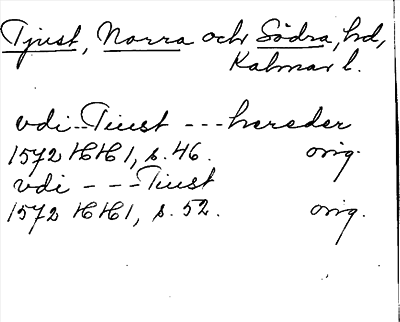 Tjust, Norra och Södra, hd,
Kalmar l.
vdi--Tiust---hereder
1572 HH1, s. 46. orig.
vdi ---Tiust
1572 HH1, s. 52. orig.